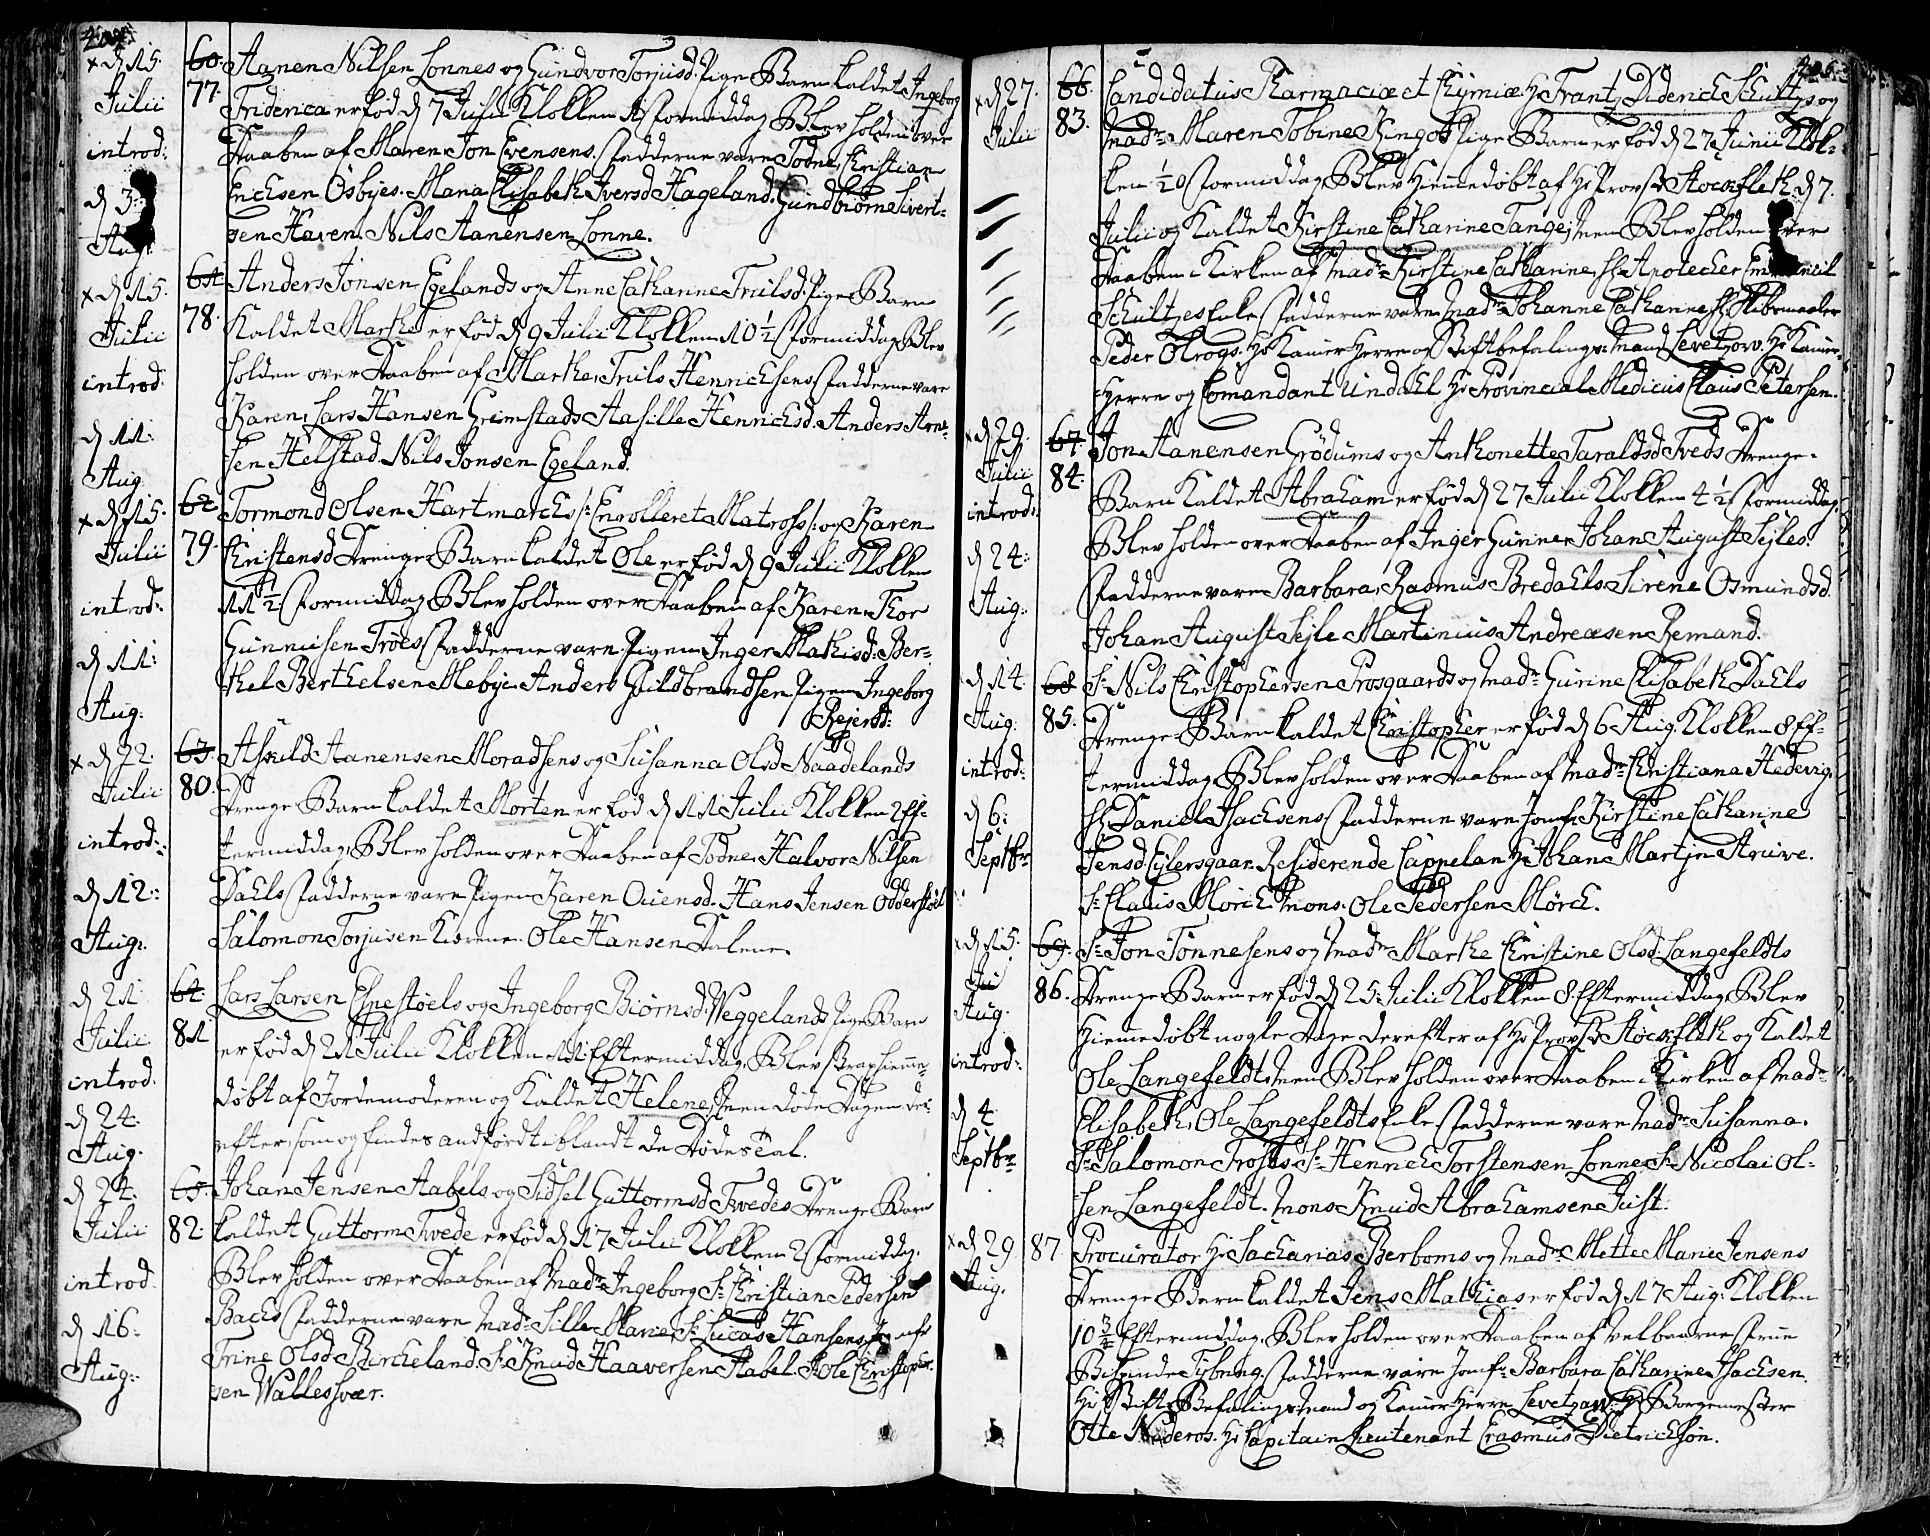 × d 15. 60. Aanen Nilsen Lonnes og Gundvor Torjusd. Pige Barn kaldet Ingeborg
Julii 77. Friderica er fød d 7 Julii Klokken 11 Formiddag Blev holden over
introd: Daaben af Maren Jon Evensens. Fadderne vare Todne Christian
d 3 Erichsen Osbyes. Maria Elisabeth Iversd Hageland. Gundbiørn Sivert-
Aug: sen Haven. Nils Aanensen Lonne.
× d 15. 61. Anders Jonsen Egelands og Anne Catharine Truilsd. Pige Barn
Julii 78. Kaldet Marthe er fød d 9 Julii Klokken 10 1/2 Formiddag Blev
introd. holden over Daaben af Marthe Truils Henrichsens Fadderne vare
d 11: Karen Lars Hansen Grimstads Aasille Henrichsd. Anders Arn-
Aug. sen Helstad Nils Jonsen Egeland.
× d 15. 62 Tormond Olsen Hartmarchs /: Enrolleret Matros :/ og Karen
Julii 79. Christensd Drenge Barn kaldet Ole er fød d 9 Julii Klokken
introd: 11 1/2 Formiddag Blev holden over Daaben af Karen Thor
d 11: Gunnuisen Troes Fadderne vare Pigen Inger Mathisd: Ber-
Aug: thel Berthelsen Mebye. Anders Guldbrandsen Pigen Ingeborg
Rejersd:
× d 22. 63. Asuld Aanensen Moradsens og Susanna Olsd Naadelands
Julii 80. Drenge Barn kaldet Morten er fød d 11 Julii Klokken 2 Ef-
introd: termiddag, Blev holden over Daaben af Todne Halvor Nilsen
d 12: Dahls Fadderne vare Pigen Karen Ouensd. Hans Jensen Odderstøel
Aug: Salomon Torjusen Ole Hansen Dalene.
d 21 64. Lars Larsen Egestøels og Ingeborg Biørnsd: Weggelands Pige Barn
Julii 81 er fød d 21 Julii Klokken 11 Eftermiddag, Blev strax hiemme-
introd. døbt af Jordemoderen og Kaldet Helene, men døde Dagen der-
d 24. efter, som og findes andført iblandt de Dødes tal.
Aug.
d 24. 65. Johan Jensen Aabels og Sidsel Guttormsd Tvedes Drenge Barn
Julii 82. kaldet Guttorm Tvede er fød d 17 Julii Klokken 2 Formiddag.
introd. Blev holden over Daaben af Madr Ingeborg Sr Christian Pedersens
d 16: Bachs Fadderne vare Madr Sille Marie Sr Lucas Hansens Jomfr
Aug: Trine Olsd Bircheland. Sr Knud Haaversen Aabel. Sr Ole Christopher-
sen Wallessvær.
× d 27. 66. Candidatus Pharmaciæ et Chymiæ Hr Frantz Diderich Schultzes og
Julii 83. Madr Maren Tobine Kingos Pige Barn er fød d 27 Junii Klok-
ken 1/2 10 Formiddag, Blev hiemmedøbt af Hr Provst Stockfleth d 7.
Julii og kaldet Kirstine Catharine Tange, men Blev holden over
Daaben i Kirken af Madr Kirstine Catharine Sl Apotecher Emanuel
Schultzes Enke Fadderne vare Madr Johanne Catharine Sl Skibsmaaler
Peder Olrogs. Hr Kamer Herre og Stiftbefalings-Mand Levetzow. Hr Kamer-
Herre og Comandant Undahl Hr Provincial Medicus Claus Petersen.
× d 29. 67. Jon Aanensen Grødums og Anthonette Taraldsd Tveds Drenge-
Julii 84. Barn kaldet Abraham er fød d 27 Julii Klokken 4 1/2 Formiddag.
introd: Blev holden over Daaben af Inger Gunne Johan August Sejles.
d 24: Fadderne vare Barbara Rasmus Bredahls Sirene Osmundsd.
Aug: Johan August Sejle Martinius Andreæsen Remand.
d 14. 68 Sr Nils Christophersen Prosgaards og Madr Gurine Elisabeth Dahls
Aug: 85. Drenge Barn kaldet Christopher er fød d 6 Aug. Klokken 8 Ef-
introd: termiddag Blev holden over Daaben af Madr Christiana Hedevig.
d 6: Sl Daniel Isachsens Fadderne vare Jomfr Kirstine Catharine
Septbr Jensd. Eylersgaar. Residerende Cappelan Hr Johan Martin Arüre.
Sr Claus Mørch Mons. Ole Pedersen Mørch.
× d 15. 69. Sr Jon Tønnesens og Madr Marthe Christine Olsd. Langefeldts
Ju 86. Drenge Barn er fød d 25. Julii Klokken 8 Eftermiddag, Blev
Aug. Hiemmedøbt nogle Dage derefter af Hr Provst Stockfleth og kaldet
introd: Ole Langefeldt, men Blev holden over Daaben i Kirken af Madr
d 4 Elisabeth Ole Langefeldts Enke Fadderne vare Madr Susanna.
Septbr Sr Salomon Trosts Sr Henrich Torstensen Lonne Sr Nicolai Ol-
sen Langefeldt. Mons Knud Abrahamsen Just.
× d 29 87. Procurator Hr Sacharias Berboms og Madr Mette Marie Jensens
Aug. Drenge Barn kaldet Jens Mathias er fød d 17 Aug. Klokken
10 3/4 Eftermiddag. Blev holden over Daaben af Velbaarne Frue
Bispinde Tybring. Fadderne vare Jomfr Barbara Catharine Isachsen.
Hr Stift-Befalings-Mand og Kamer-Herre Levetzow. Hr Borgemester
Otte Nideros. Hr Capitain Lieutenant Erasmus Dietrichson.